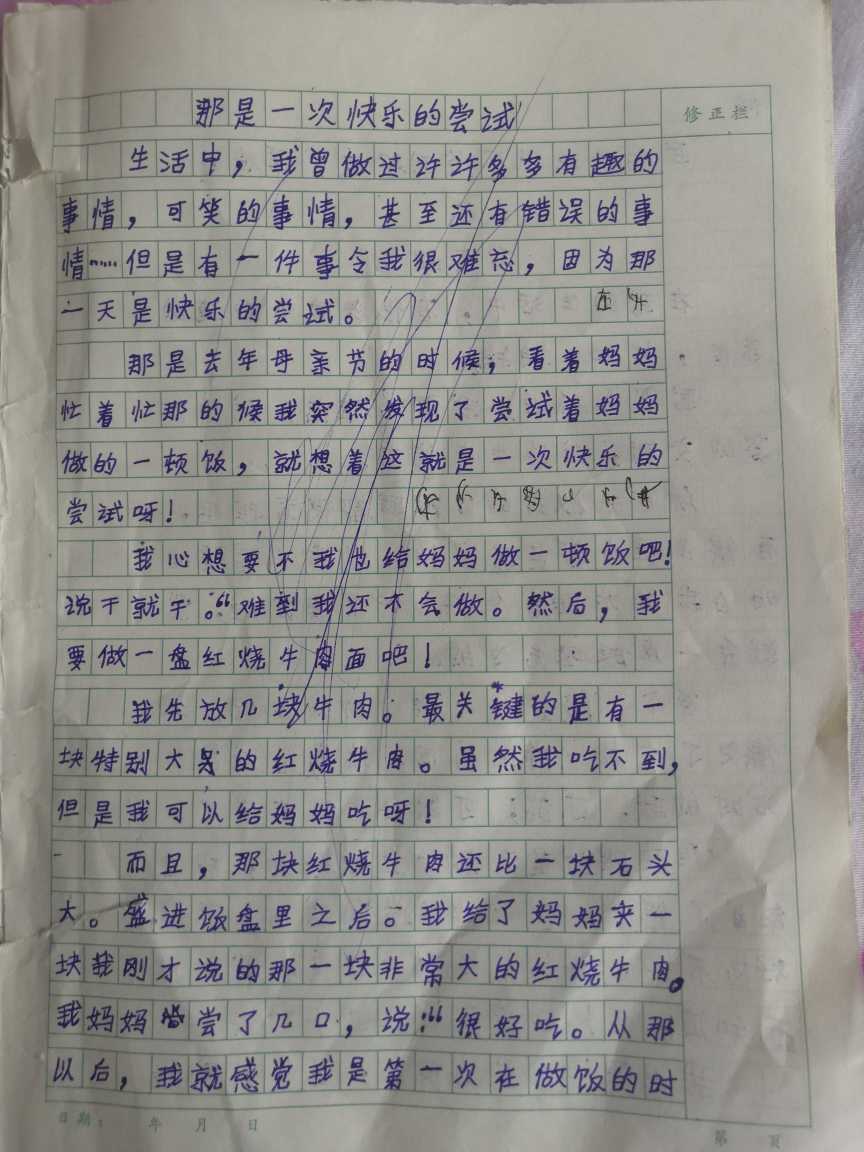 那是一次快乐的尝试
修正栏
生活中，我曾做过许许多多有趣的
事情，可笑的事情，甚至还有错误的事
情……但是有一件事令我很难忘，因为那
一天是快乐的尝试。
那是去年母亲节的时候，看着妈妈
忙着忙那的候我突然发现了尝试着妈妈
做的一顿饭，就想着这就是一次快乐的
尝试呀！
我心想要不我也给妈妈做一顿饭吧！
说干就干。“难到我还不会做。然后，我
要做一盘红烧牛肉面吧！
我先放几块牛肉。最关键的是有一
块特别大号的红烧牛肉。虽然我吃不到，
但是我可以给妈妈吃呀！
而且，那块红烧牛肉还比一块石头
大。盛进饭盘里之后。我给了妈妈夹一
块我刚才说的那一块非常大的红烧牛肉。
我妈妈尝了几口，说：“很好吃。从那
以后，我就感觉我是第一次在做饭的时
日期： 年 月 日
第 页